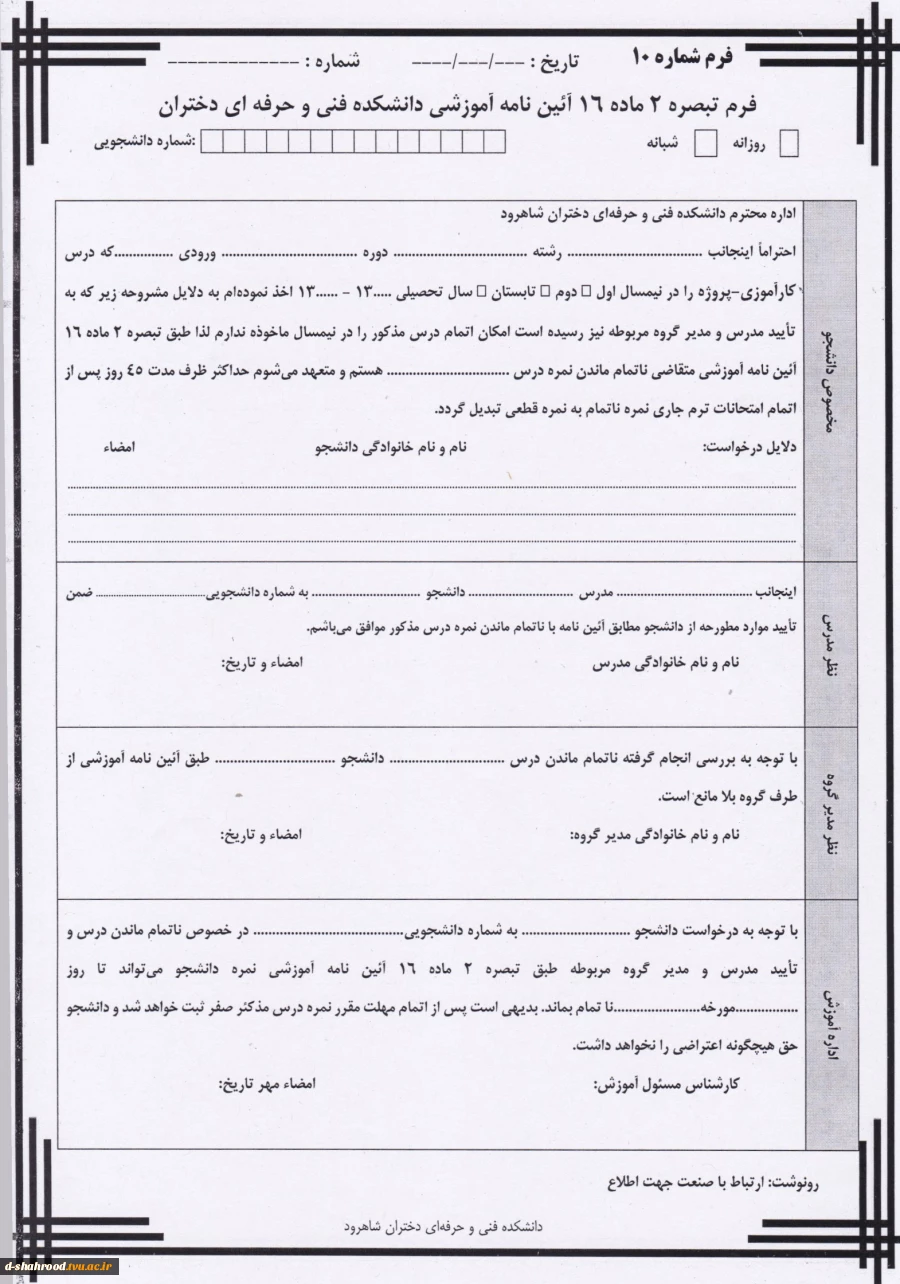 فرم شماره ۱۰
تاریخ : ---/---/----
شماره : -------------
فرم تبصره ۲ ماده ۱۶ آئین نامه آموزشی دانشکده فنی و حرفه ای دختران
روزانه □ شبانه □ شماره دانشجویی:
مخصوص دانشجو
اداره محترم دانشکده فنی و حرفه‌ای دختران شاهرود
احتراماً اینجانب .................................. رشته .................................. دوره .................................. ورودی ...............که درس
کارآموزی-پروژه را در نیمسال اول □ دوم □ تابستان □ سال تحصیلی .....۱۳ - ......۱۳ اخذ نموده‌ام به دلایل مشروحه زیر که به
تأیید مدرس و مدیر گروه مربوطه نیز رسیده است امکان اتمام درس مذکور را در نیمسال ماخوذه ندارم لذا طبق تبصره ۲ ماده ۱۶
آئین نامه آموزشی متقاضی ناتمام ماندن نمره درس ............................... هستم و متعهد می‌شوم حداکثر ظرف مدت ۴۵ روز پس از
اتمام امتحانات ترم جاری نمره ناتمام به نمره قطعی تبدیل گردد.
دلایل درخواست: نام و نام خانوادگی دانشجو امضاء
نظر مدرس
اینجانب .................................. مدرس .......................... دانشجو ........................... به شماره دانشجویی.................................. ضمن
تأیید موارد مطروحه از دانشجو مطابق آئین نامه با ناتمام ماندن نمره درس مذکور موافق می‌باشم.
نام و نام خانوادگی مدرس امضاء و تاریخ:
نظر مدیر گروه
با توجه به بررسی انجام گرفته ناتمام ماندن درس ............................. دانشجو .............................. طبق آئین نامه آموزشی از
طرف گروه بلا مانع است.
نام و نام خانوادگی مدیر گروه: امضاء و تاریخ:
اداره آموزش
با توجه به درخواست دانشجو ........................... به شماره دانشجویی...................................... در خصوص ناتمام ماندن درس و
تأیید مدرس و مدیر گروه مربوطه طبق تبصره ۲ ماده ۱۶ آئین نامه آموزشی نمره دانشجو می‌تواند تا روز
................مورخه......................نا تمام بماند. بدیهی است پس از اتمام مهلت مقرر نمره درس مذکثر صفر ثبت خواهد شد و دانشجو
حق هیچگونه اعتراضی را نخواهد داشت.
کارشناس مسئول آموزش: امضاء مهر تاریخ:
رونوشت: ارتباط با صنعت جهت اطلاع
دانشکده فنی و حرفه‌ای دختران شاهرود
d-shahrood.tvu.ac.ir